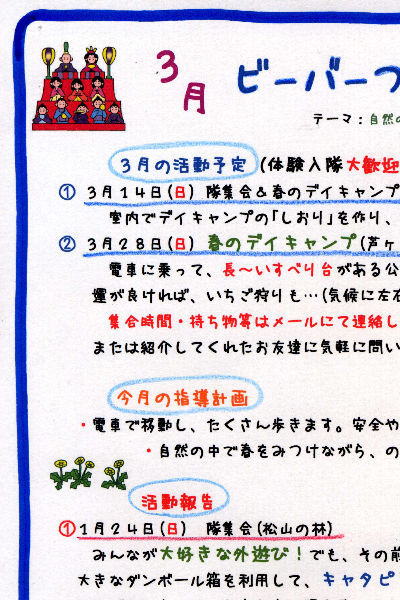 3月 ビーバーつ
テーマ：自然の
3月の活動予定 (体験入隊大歓迎
① 3月14日(日) 隊集会&春のデイキャンプ
室内でデイキャンプの「しおり」を作り、
② 3月28日(日) 春のデイキャンプ(芦ヶ
電車に乗って、長〜いすべり台がある公
運が良ければ、いちご狩りも…(気候に左右
集合時間・持ち物等はメールにて連絡し
または紹介してくれたお友達に気軽に問い
今月の指導計画
・電車で移動し、たくさん歩きます。安全や
・自然の中で春をみつけながら、の
活動報告
①1月24日(日) 隊集会(松山の林)
みんなが大好きな外遊び！でも、その前
大きなダンボール箱を利用して、キャタピ